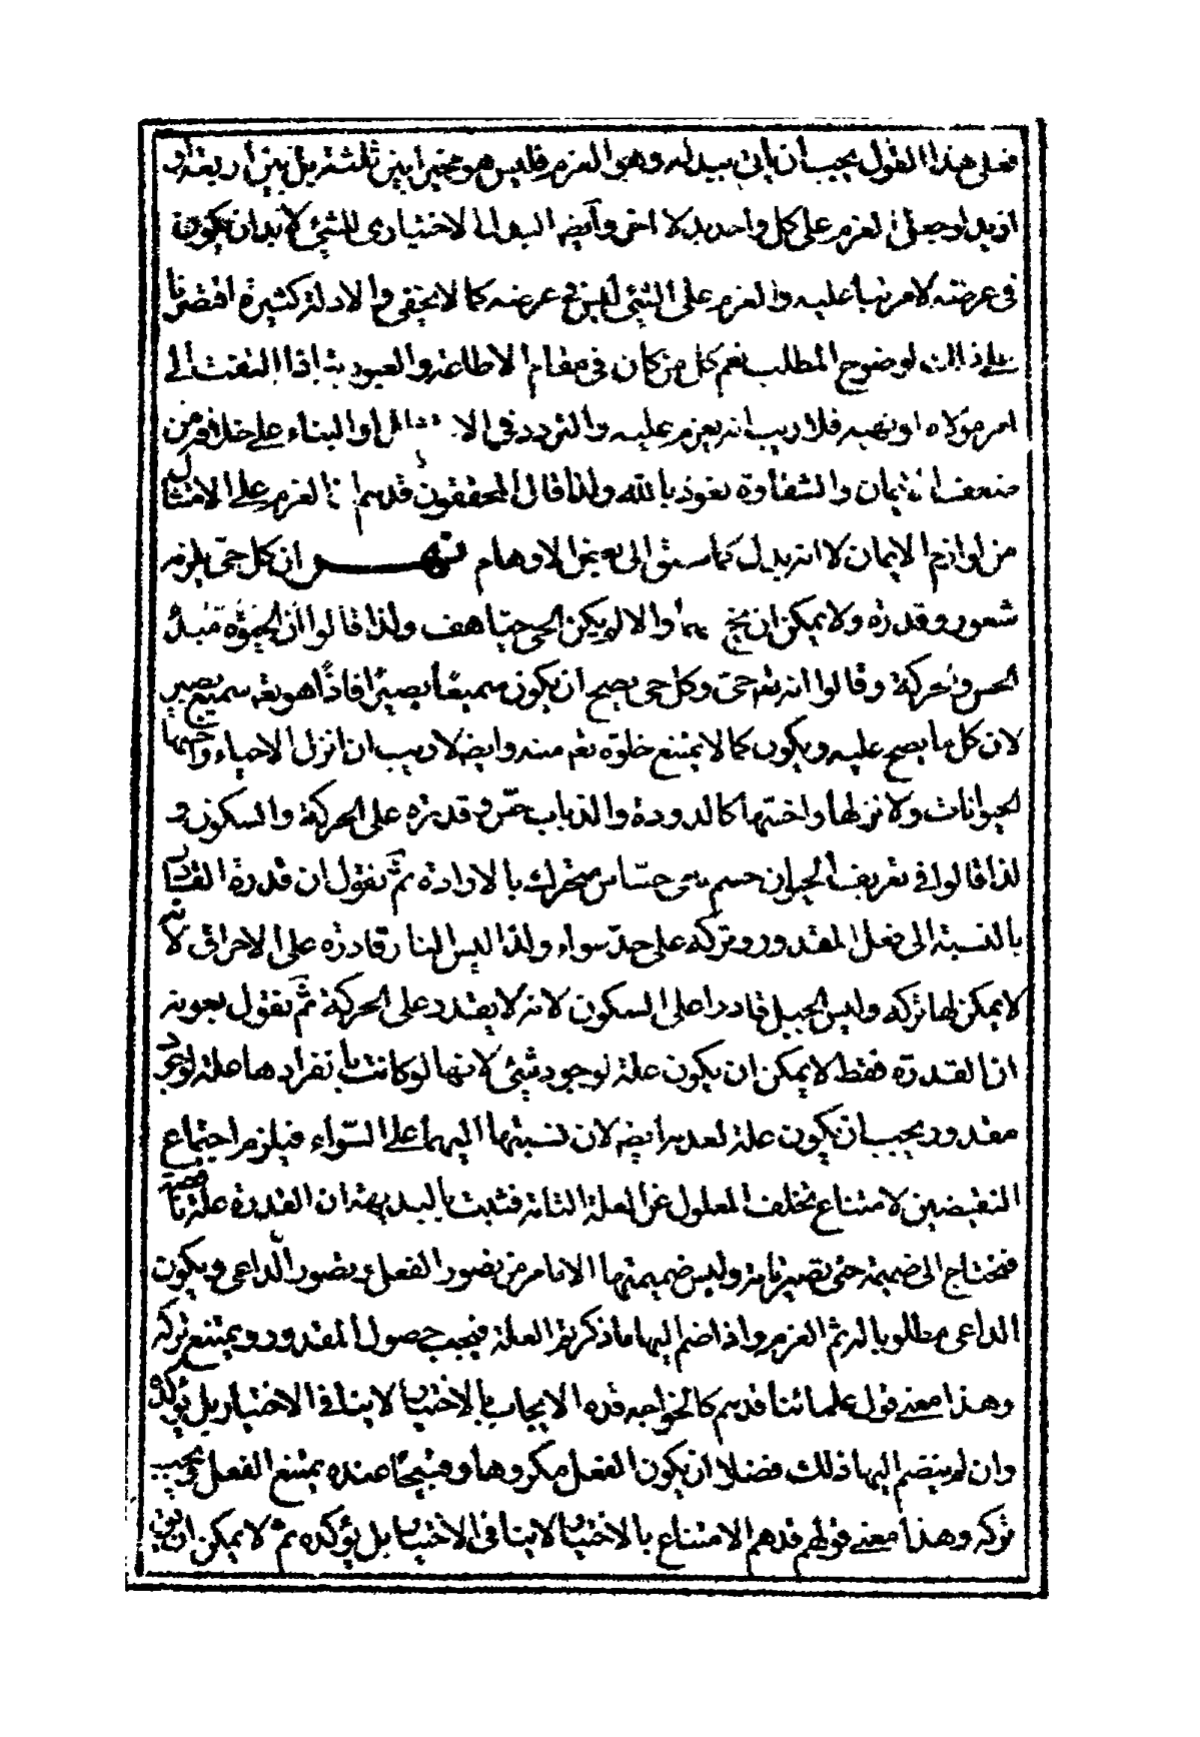 فعلى هذا القول يجب ان يأتى ببدله وهو العزم فليس هو مخير ابين ثلثة بل بين أربعة أو
ازيد لو جعل العزم على كل واحد بدلا اخر وأيضه البدل الاختيارى للشئ لا بد ان يكون
فى عرضه لا مرتبا عليه والعزم على الشئ ليس فى عرضه كما لا يخفى والادلة كثيرة اقتصرنا
بذلك لوضوح المطلب نعم كل من كان فى مقام الاطاعة والعبودية اذا التفت الى
امر مولاه او نهيه فلا ريب انه يعزم عليه والتردد فى الامتثال او البناء على خلافه من
ضعف الايمان والشقاوة نعوذ بالله ولذا قال المحققون قدهم ان العزم على الامتثال
من لوازم الايمان لا انه بدل كما سبق الى بعض الاوهام نهر ان كل حىّ يلزمه
شعور وقدرة ولا يمكن ان يخ منهما والا لم يكن الحى حيّا هف ولذا قالوا ان الحيوة مبدء
الحس والحركة وقالوا انه تعه حىّ وكل حى يصح ان يكون سميعًا بصيرًا فاذًا هو تعه سميع بصير
لان كل ما يصح عليه ويكون كما لا يمتنع خلوّه تعه منه وايضه لا ريب ان انزل الاحياء واخسها
الحيوانات ولا نزلها واخسّها كالدودة والذباب حسّ وقدرة على الحركة والسكون و
لذا قالوا فى تعريف الحيوان جسم نامى حسّاس متحرك بالارادة ثمّ نقول ان قدرة القادر
بالنسبة الى فعل المقدور وتركه على حدّ سواء ولذا ليس النار قادرة على الاحراق لانه
لا يمكن لها تركه وليس الجبل قادرا على السكون لانه لا يقدر على الحركة ثمّ نقول بعونه
ان القدرة فقط لا يمكن ان يكون علة لوجود شئ لانها لو كانت بانفرادها علة لوجود
مقدور يجب ان يكون علة لعدمه ايضه لان نسبتها اليهما على السّواء فيلزم اجتماع
النقيضين لامتناع تخلف المعلول عن العلة التامة فثبت بالبديهة ان القدرة علة ناقصة
فتحتاج الى ضميمة حتى تصير تامة وليس ضميمتها الا ما مر من تصور الفعل وتصور الداعى ويكون
الداعى مطلوبا له ثم العزم واذا ضم اليها ما ذكر تمّ العلة فيجب حصول المقدور ويمتنع تركه
وهذا معنى قول علمائنا قدهم كالخواجه قده الايجاب بالاختيار لا ينافى الاختيار بل يؤكده
وان لم ينضم اليها ذلك فضلا ان يكون الفعل مكروها وقبيحًا عنده يمتنع الفعل ويجب
تركه وهذا معنى قولهم قدهم الامتناع بالاختيار لا ينافى الاختيار بل يؤكده ثم لا يمكن ان يق